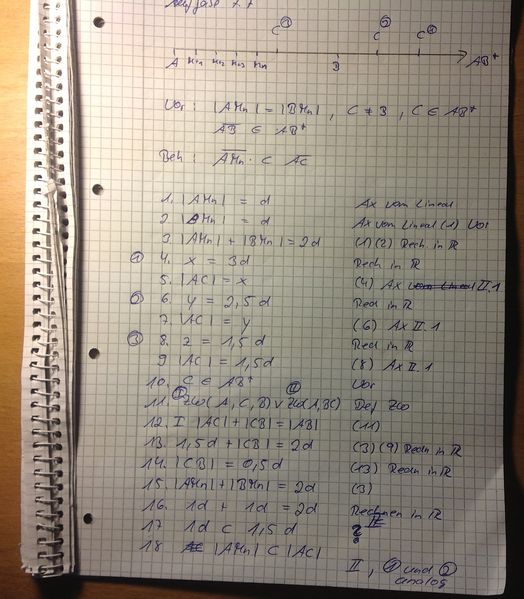 C① C② C④
A Mn₁ Mn₂ Mn₃ Mn B AB⁺
Vor : |AMn| = |BMn| , C ≠ B , C ∈ AB⁺
AB ∈ AB⁺
Beh : AMn ⊂ AC
1. |AMn| = d Ax vom Lineal
2. |BMn| = d Ax vom Lineal (1) Vor
3. |AMn| + |BMn| = 2d (1) (2) Rech. in ℝ
① 4. x = 3d Rech in ℝ
5. |AC| = x (4) Ax vom Lineal II.1
② 6. y = 2,5 d Rech in ℝ
7. |AC| = y (6) Ax II.1
③ 8. z = 1,5 d Rech in ℝ
9 |AC| = 1,5d (8) Ax II.1
10. C ∈ AB⁺ Vor
11. Zw(A, C, B) ∨ Zw(A, B, C) Def Zw
12. I |AC| + |CB| = |AB| (11)
13. 1,5d + |CB| = 2d (3) (9) Rechn in ℝ
14. |CB| = 0,5 d (13) Rechn in ℝ
15. |AMn| + |BMn| = 2d (3)
16. 1d + 1d = 2d Rechnen in ℝ
17 1d ⊂ 1,5 d ?
18 |AMn| ⊂ |AC|
II , ① und ② analog